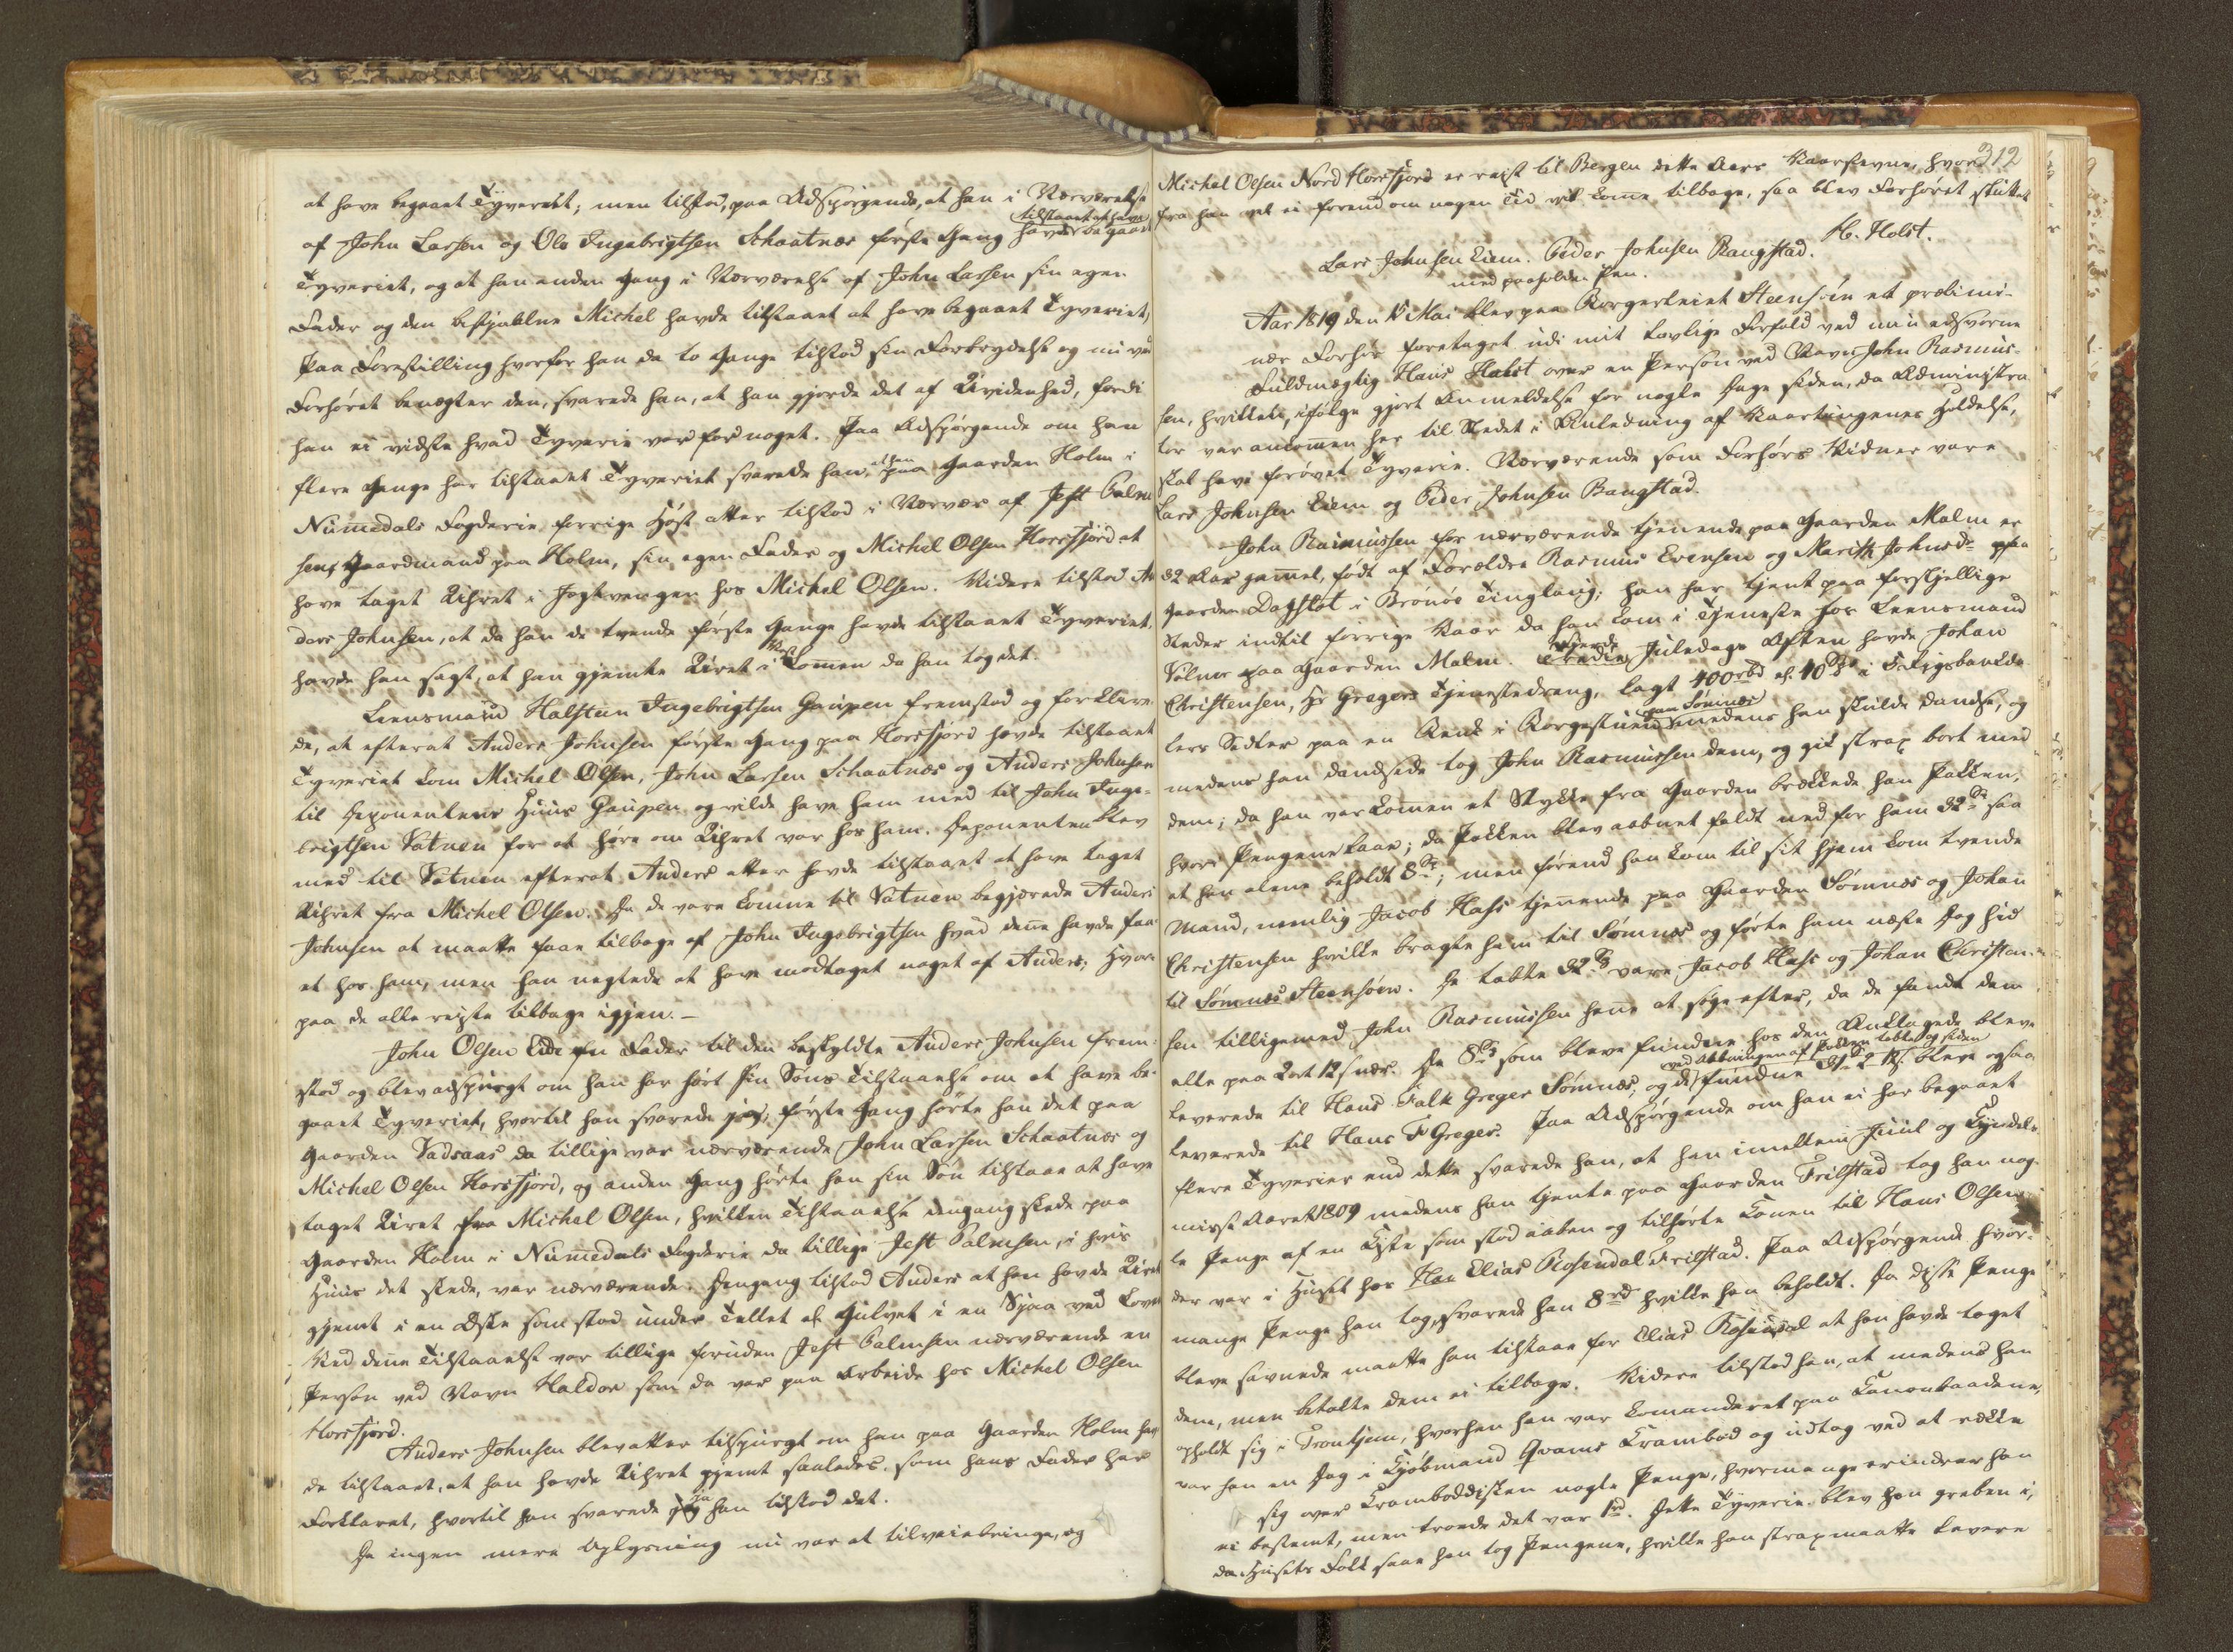 at have begaaet Tyveriet; men tilstod, paa Adspørgende, at han i Nærværelse
af John Larsen og Ole Ingebrigtsen Schaatnæs første Gang havde tilstaaet at have begaaet
Tyveriet, og at han anden Gang i Nærværelse af John Larsen sin egen
Fader og den bestjaalne Michel havde tilstaaet at have begaaet Tyveriet,
Paa Forestilling hvorfor han da to Gange tilstod sin Forbrydelse og nu ved
Forhøret benægter den, svarede han, at han gjorde det af Uvidenhed, fordi
han ei vidste hvad Tyverie var for noget. Paa Adspørgende om han
flere Gange har tilstaaet Tyveriet svarede han, at han paa Gaarden Holm i
Nummedals Fogderie forrige Høst atter tilstod i Nærvær af Jeft Palm
sen, Gaardmand paa Holm, sin egen Fader og Michel Olsen Horsfjord at
have taget Uhret i hos Michel Olsen. Videre tilstod An
ders Johnsen, at da han de tvende første Gange havde tilstaaet Tyveriet,
havde han sagt, at han gjemte Uret i Lommen da han tog det.
Leensmand Halsteen Ingebrigtsen Gaupen fremstod og forklare
de, at efterat Anders Johnsen første Gang paa Horsfjord havde tilstaaet
Tyveriet kom Michel Olsen, John Larsen Schaatnæs og Anders Johnsen
til Deponentens Huus Gaupen og vilde have ham med til John Inge-
brigtsen Vatnen for at høre om Uhret var hos ham. Deponenten blev
med til Vatnen efterat Anders atter havde tilstaaet at have taget
Uhret fra Michel Olsen. Da de vare komne til Vatnen begjærede Anders
Johnsen at maatte faae tilbage af John Ingebrigtsen hvad denne havde faa-
et hos ham, men han negtede at have modtaget noget af Anders, hvor-
paa de alle reiste tilbage igjen. –
John Olsen Eide en Fader til den beskyldte Anders Johnsen frem-
stod og blev adspurgt om han har hørt sin Søns Tilstaaelse om at have be-
gaaet Tyveriet, hvortil han svarede jo; første Gang hørte han det paa
Gaarden Vadsaas da tillige var nærværende John Larsen Schaatnæs og
Michel Olsen Horsfjord, og anden Gang hørte han sin Søn tilstaae at have
taget Uret fra Michel Olsen, hvilken Tilstaaelse dengang skede paa
Gaarden Holm i Nummedals Fogderie da tillige Jeft Palmsen, i hvis
Huus det skede, var nærværende. Dengang tilstod Anders at han havde Uret
gjemt i en Æske som stod under Tellet af Gulvet i en Sjaa ved
Ved denne Tilstaaelse var tillige foruden Jeft Palmsen nærværende en
Person ved Navn Haldor som da var paa Arbeide hos Michel Olsen
Horsfjord.
Anders Johnsen blev atter tilspurgt om han paa Gaarden Holm hav
de tilstaaet, at han havde Uhret gjemt saaledes som hans Fader har
Forklaret, hvortil han svarede ja han tilstod det.
Da ingen mere Oplysning nu var at tilveiebringe, og
312
Michel Olsen Nord Horsfjord er reist til Bergen dette Aars Vaarstevne, hvor-
fra han vel ei forend om nogen Tid vil komme tilbage, saa blev Forhøret sluttet
H. Holst.
Lars Johnsen Eiem. Peder Johnsen Rangstad.
med paaholden Pen.
Aar 1819 den 15 Mai blev paa Borgerleiet Steensøen et prælimi-
nær Forhør foretaget udi mit lovlige Forfald ved min edsvorne
Fuldmægtig Hans Holst over en Person ved Navn John Rasmus-
sen, hvilken, ifølge gjort Anmeldelse for nogle Dage siden, da Administra
tor var ankommen her til Stedet i Anledning af Vaartingenes Holdelse,
skal have forøvet Tyverie. Nærværende som Forhørs Vidner vare
Lars Johnsen Eiem og Peder Johnsen Rangstad.
John Rasmussen for nærværende tjenende paa Gaarden Malm er
32 Aar gammel, født af Forældre Rasmus Evensen og Marith Johnsdr paa
Gaarden Dagslot i Brønøe Tinglaug; han har tjent paa forskjellige
Steder indtil forrige Vaar da han kom i Tjeneste hos Leensmand
Volmer paa Gaarden Malm. Tredie Juledags Aften havde Johan
Christensen, Hr Gregers Tjenestedreng, lagt 400rbd af 10 i Rigsbankda-
lers Sedler paa en Benk i Borgestuen paa Sømnæs medens han skulde dandse, og
medens han dandsede tog John Rasmussen dem, og gik strax bort med
dem; da han var kommen et Stykke fra Gaarden brækkede han Pakken,
hvori Pengene laae; da Pakken blev aabnet faldt ned for ham 32 saa
at han alene beholdt 8; men førend han kom til sit Hjem kom tvende
Mand, nemlig Jacob Hass tjenende paa Gaarden Sømnæs og Johan
Christensen hvilke bragte ham til Sømnæs og førte ham næste Dag hid
til Sømnæs Steensøen. De tabte 32 vare Jacob Hass og Johan Christen-
sen tilligemed John Rasmussen henne at søge efter, da de fandt dem
alle paa 2ort 12s nær. De 8 som bleve fundne hos den Anklagede bleve
leverede til Hans Falk Greger Sømnæs, og de ved Aabningen af Pakken tabte og siden fundne bleve ogsaa
leverede til Hans F Greger. Paa Adspørgende om han ei har begaaet
flere Tyverier end dette svarede han, at han imellem Juul og Kyndels-
misse Aaret 1809 medens han tjente paa Gaarden Trilstad tog han nog-
le Penge af en Kiste som stod aaben og tilhørte Konen til Hans Olsen
der var i Huset hos Elias Rosendal Trilstad. Paa Adspørgende hvor-
mange Penge han tog, svarede han 8rd hvilke han beholdt. Da disse Penge
bleve savnede maatte han tilstaae for Elias Rosendal at han havde taget
dem, men betalte dem ei tilbage. Videre tilstod han, at medens han
opholdt sig i Trontjem, hvorhen han var komanderet paa Canonbaadene,
var han en Dag i Kjøbmand Qvams Krambod og udtog ved at række
sig over Kramboddisken nogle Penge, hvormange erindrer han
ei bestemt, men troede det var 1rd. Dette Tyverie blev han greben i,
da Husets Folk saae han tog Pengene, hvilke han strax maatte levere